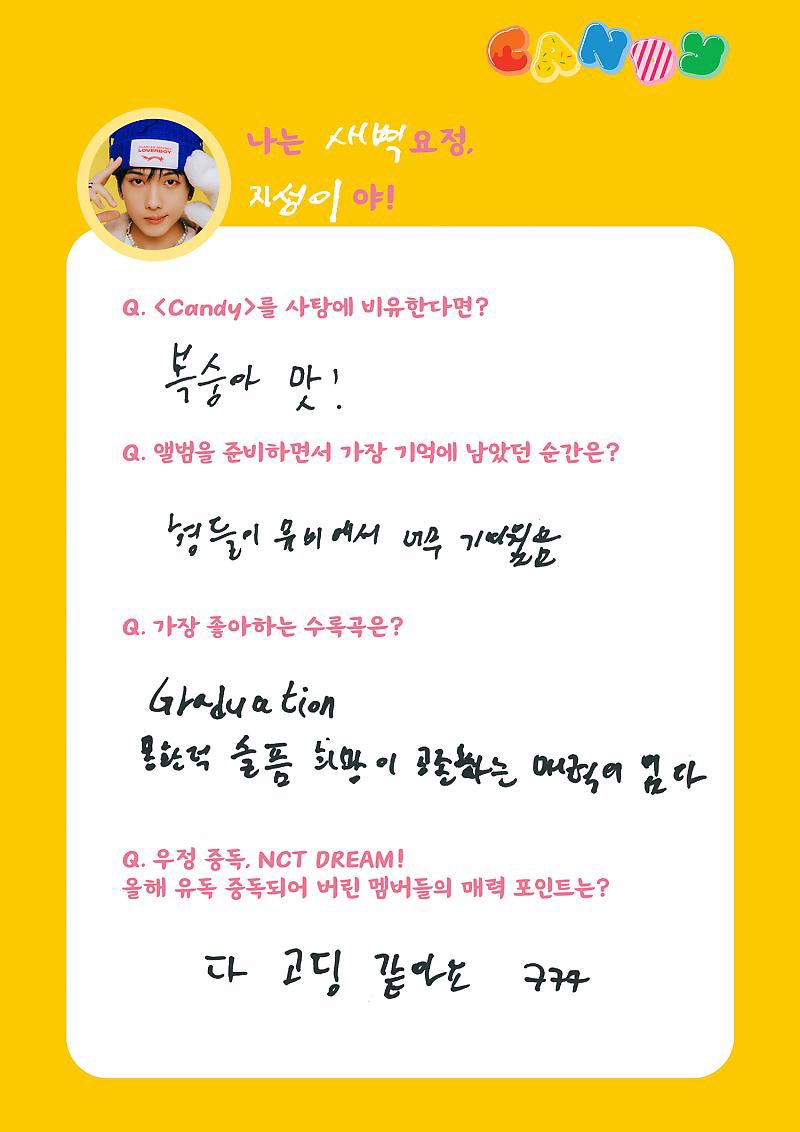 CANDY
CHARLES JEFFREY
LOVERBOY
나는 새벽요정,
지성이 야!
Q. <Candy>를 사탕에 비유한다면?
복숭아 맛!
Q. 앨범을 준비하면서 가장 기억에 남았던 순간은?
형들이 뮤비에서 너무 기여웠음
Q. 가장 좋아하는 수록곡은?
Graduation
몽환적 슬픔 희망이 공존하는 매력이 있다
Q. 우정 중독, NCT DREAM!
올해 유독 중독되어 버린 멤버들의 매력 포인트는?
다 고딩 같아요 ㅋㅋㅋ